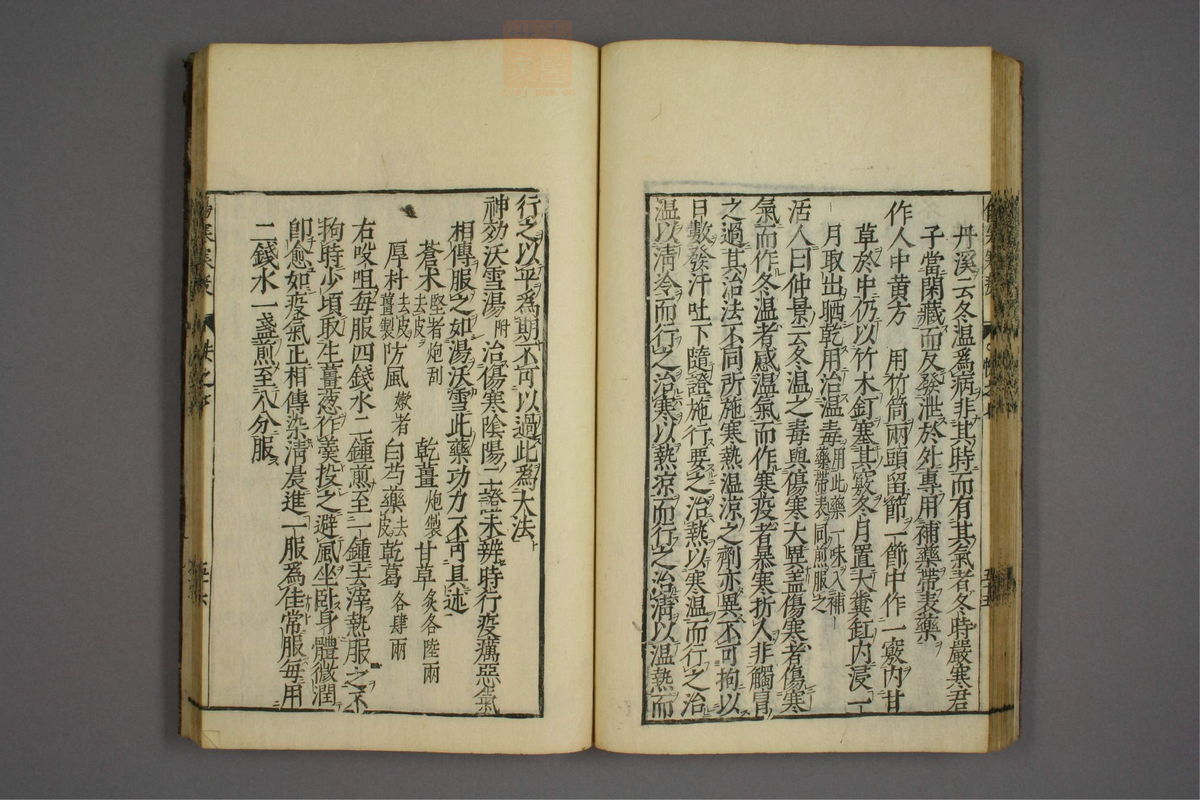 丹溪云冬温為病非其時而有其氣者冬時嚴寒君
子當閉藏而反發泄於外專用補藥帶表藥
作人中黄方　用竹筒兩頭留節一節中作一竅内甘
草於中仍以竹木釘塞其竅冬月置大糞缸内浸一
月取出晒乾用治温毒用此藥一味入補
藥帶表同煎服之
活人曰仲景云冬温之毒與傷寒大異盖傷寒者傷寒
氣而作冬温者感温氣而作寒疫者暴寒折人非觸冒
之過其治法不同所施寒熱温涼之劑亦異不可拘以
日數發汗吐下隨證施行要之治熱以寒温而行之治
温以清冷而行之治寒以熱凉而行之治清以温熱而
行之以平為期不可以過此為大法
神効沃雪湯附　治傷寒陰陽二證未辨時行疫癘惡氣
相傳服之如湯沃雪此藥功力不可具述
蒼术堅者炮刮去皮　乾薑炮製　甘草炙各陸兩
厚朴去皮薑製　防風嫩者　白芍藥去皮　乾葛各肆兩
右㕮咀每服四錢水二鍾煎至一鍾去滓熱服之不
拘時少頃取生薑葱作羹投之避風坐卧身體微潤
即愈如疫氣正相傳染清晨進一服為佳常服每用
二錢水一盞煎至八分服
五十五
五十六